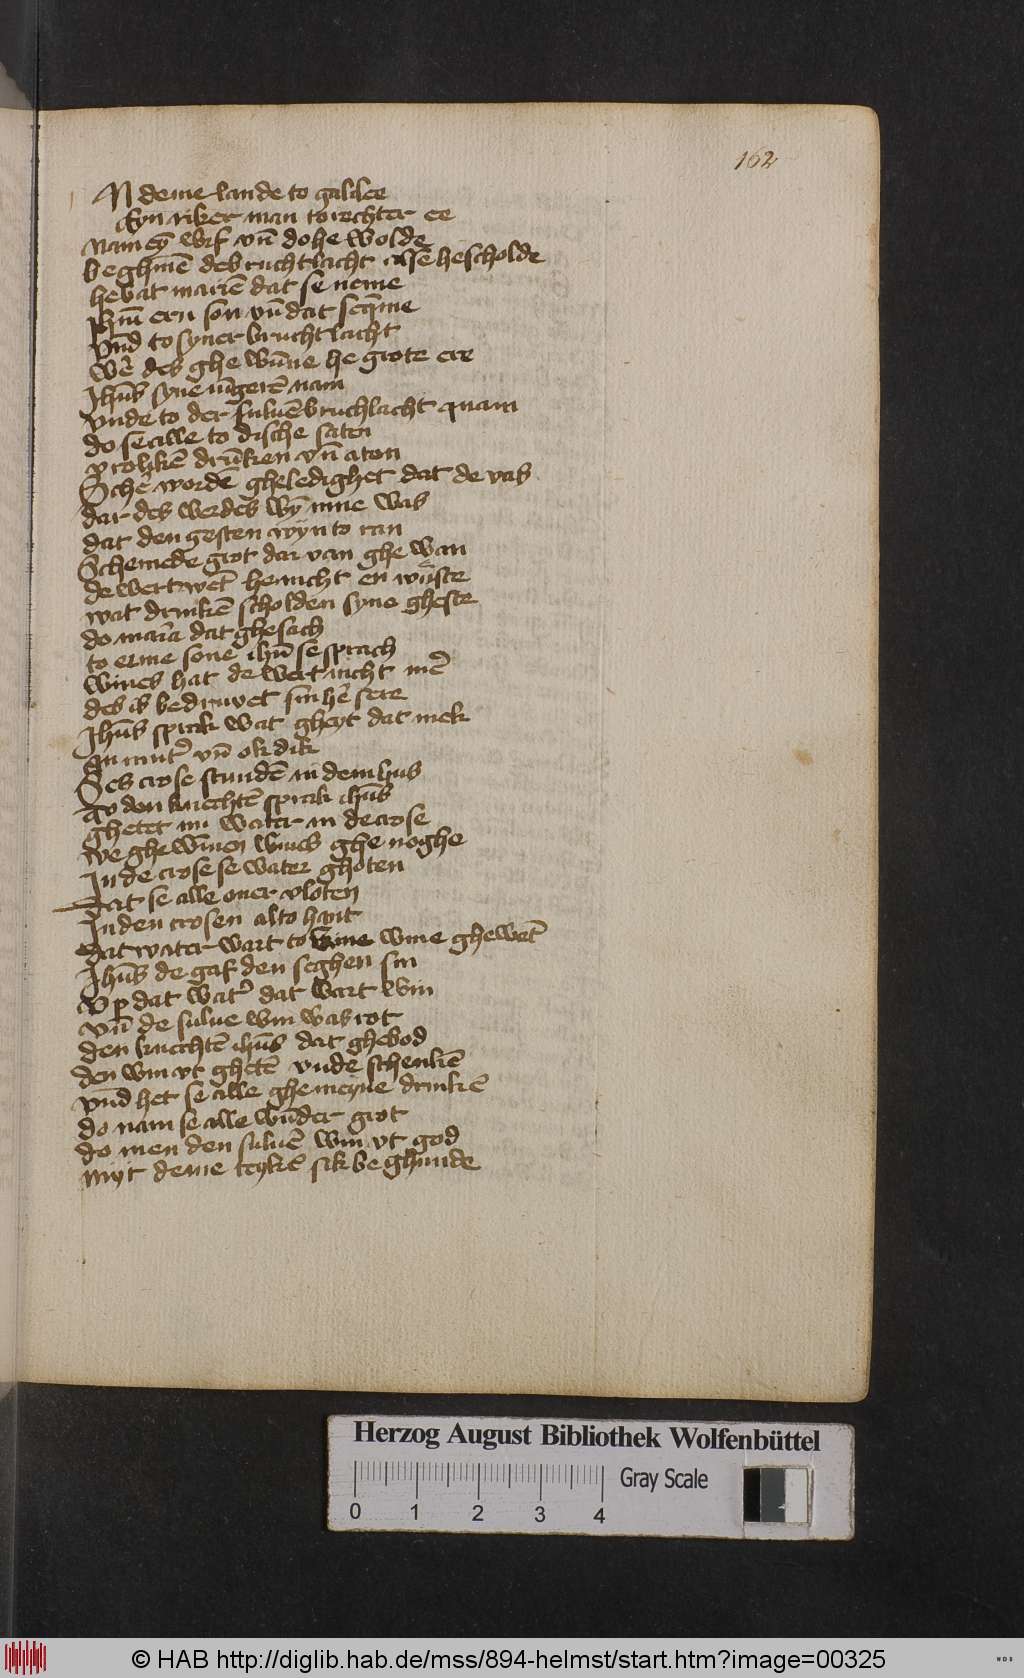 162
N deme lande to galilee
Eyn riker man to rechter ee
Nam eȳ wif vn̄ do he wolde
beghīnē de bruchtlacht alse he scholde
he bat mariē dat se neme
ihm̄ ern son vn̄ dat se q̄me
vnd to syner bruchtlacht
des ghe wūne he grote ere
Jhūs syne iūgerē nam
vnde to der suluē bruchlacht quam
do se alle to dische saten
vrolikē drūken vn̄ aten
Schē wordē gheledighet dat de vas
dar des werdes wȳ inne was
dat den gesten wyn to ran
Schemede grot dar van ghe wan
de wert wēt he nicht en wůste
wat drinkē scholden syne gheste
do maria dat ghesach
to erme sone ihū se sprach
wines hat de wert nicht mer
des is bedruvet sin h̄te sere
Jhūs sprak wat gheyt dat mek
an mut' vn̄ ok dik
Ses crose stundē in dem hus
To den knechtē sprak ihūs
ghetet mi water in de crose
we ghe winnen wines ghe noghe
In de crose se water ghoten
Dat se alle ouer vloten
In den crosen alto hant
dat water wart to wine ghewēt
Jhūs de gaf den seghen sin
Vp dat wat' dat wart win
vn̄ de sulue win was rot
den knechtē ihūs dat ghebod
den win vt ghetē vnde schenkē
vnd het se alle ghemeyne drinkē
do nam se alle wūder grot
do men den suluē win vt god
myt deme teykē sik beghunde
Herzog August Bibliothek Wolfenbüttel
Gray Scale
0 1 2 3 4
© HAB http://diglib.hab.de/mss/894-helmst/start.htm?image=00325